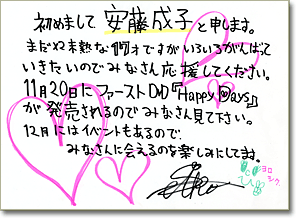 初めまして 安藤成子 と申します。
まだ未熟な17才ですがいろいろがんばって
いきたいのでみなさん応援してください。
11月20日にファーストDVD『Happy Days』
が発売されるのでみなさん見て下さい。
12月にはイベントもあるので、
みなさんに会えるのを楽しみにしてます。
ヨロ
シク